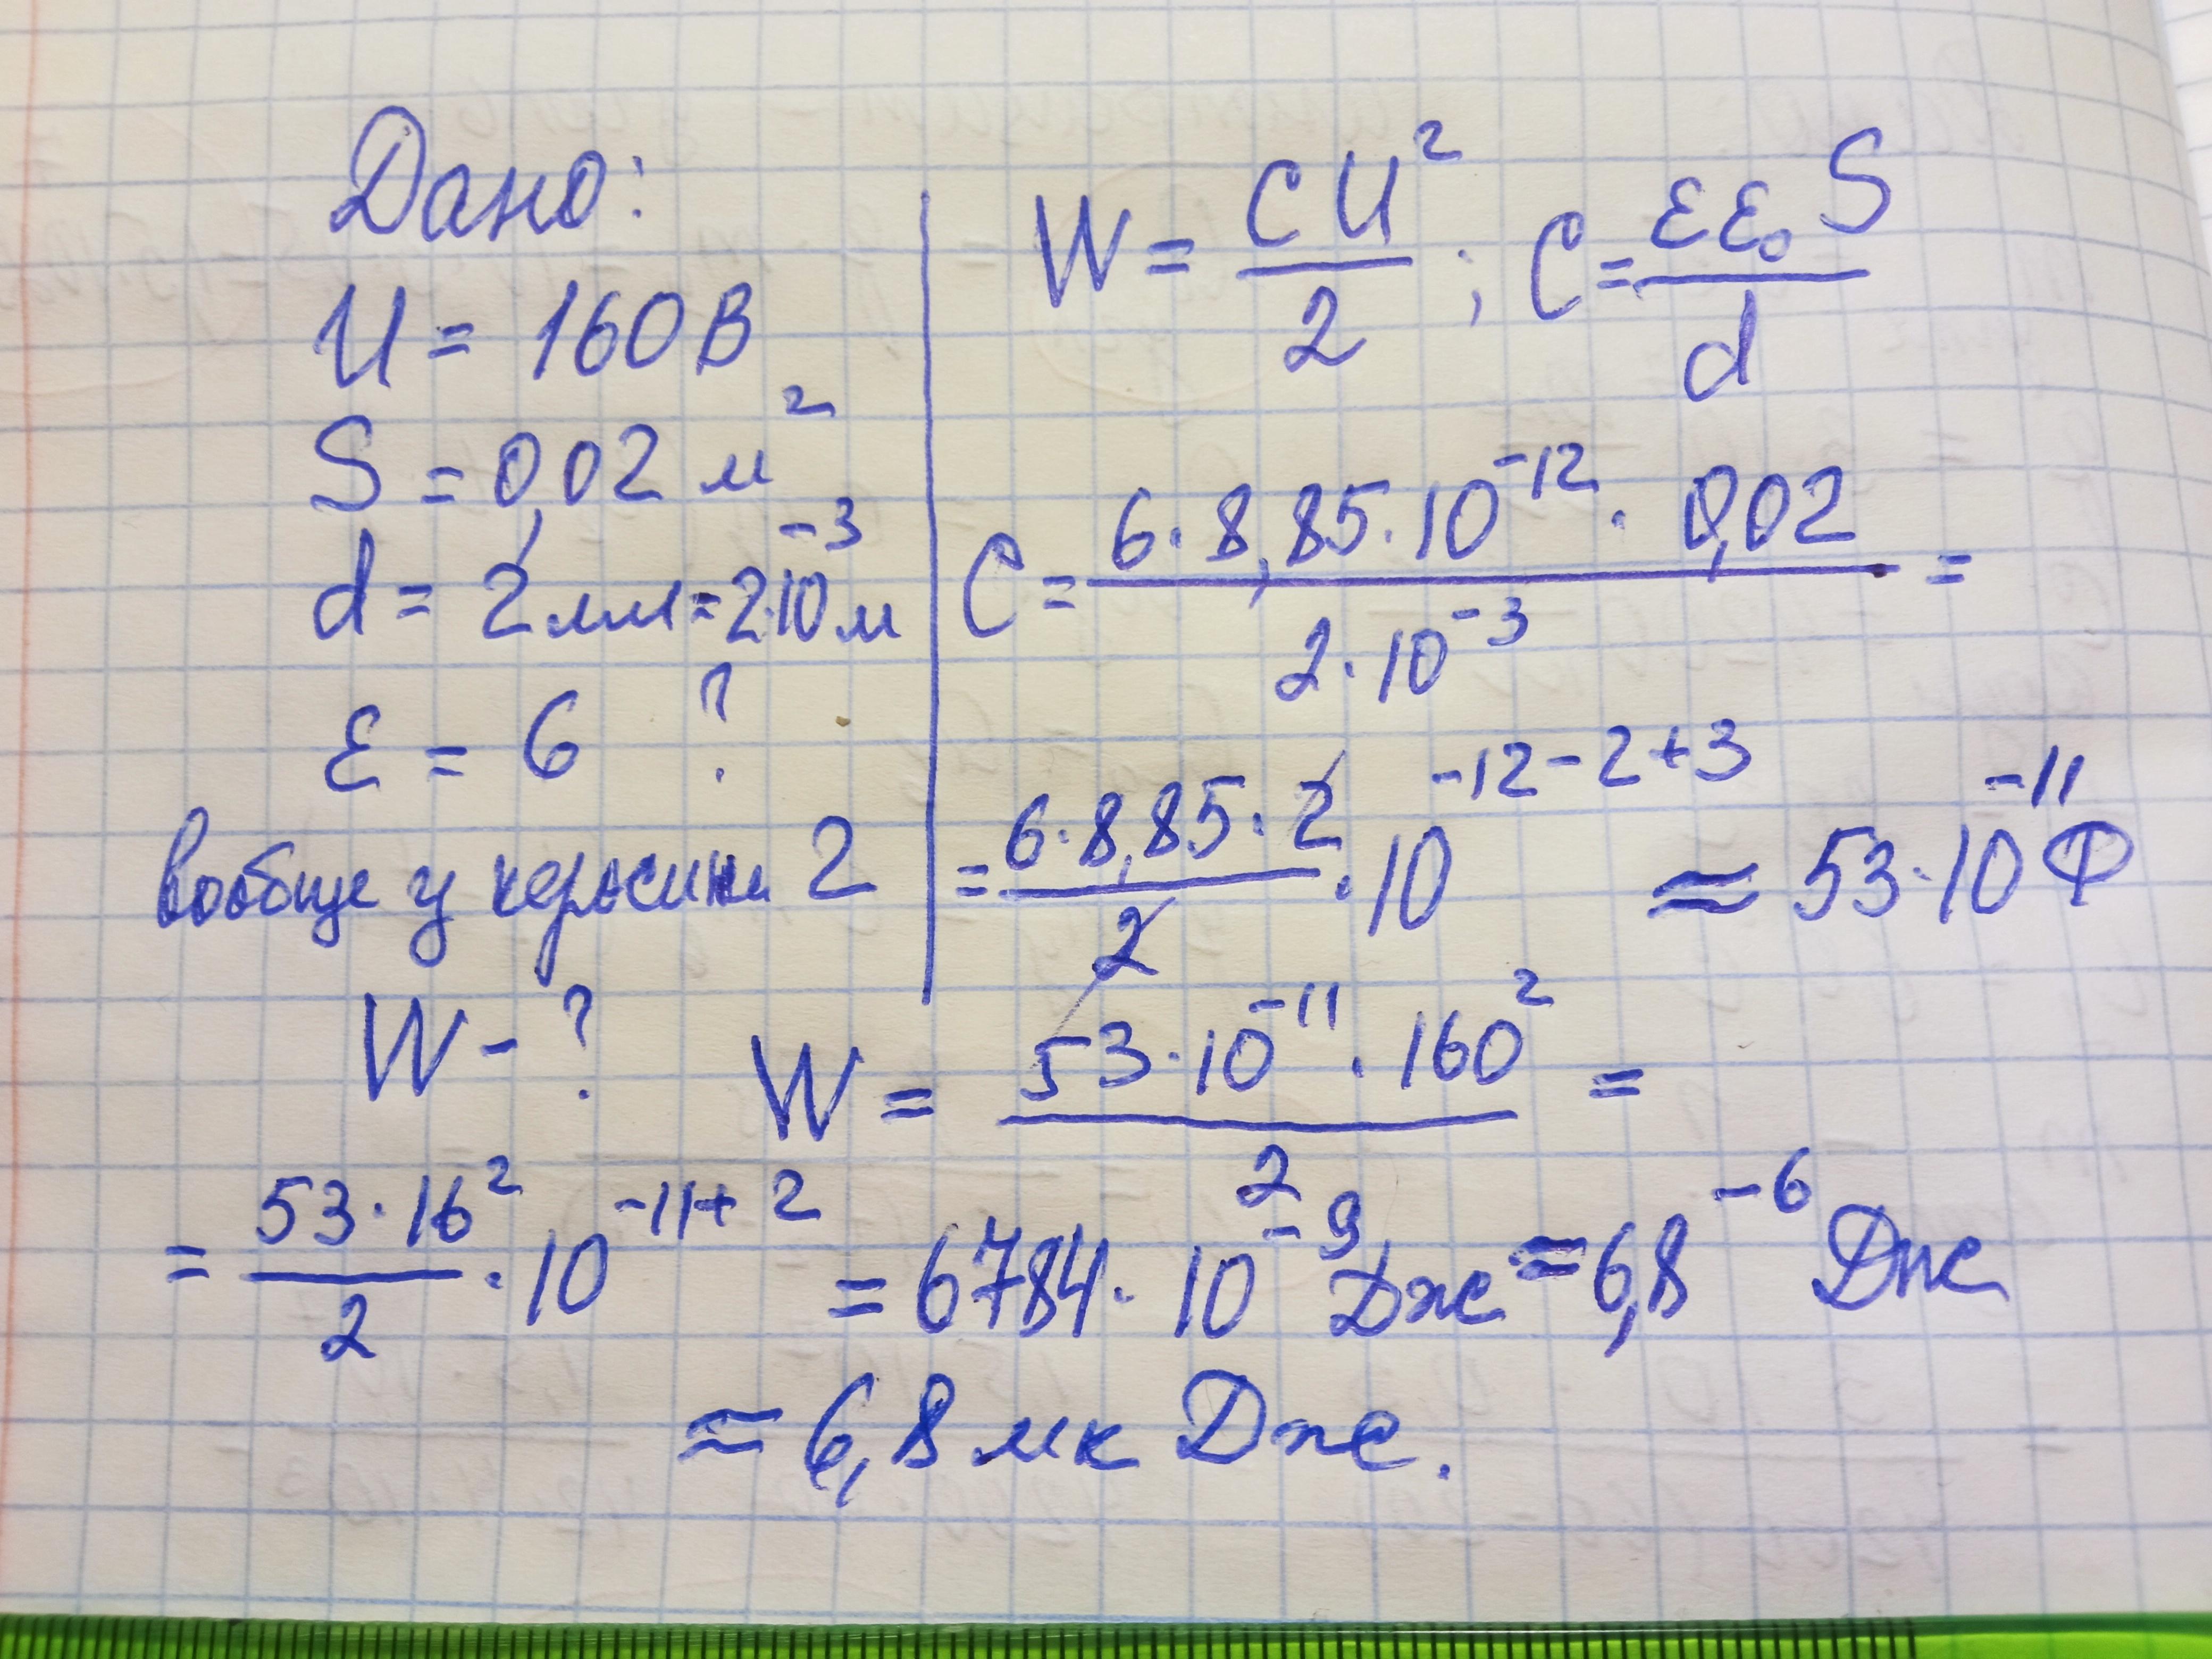 Дано:
U = 160 В
S = 0,02 м²
d = 2 мм = 2·10⁻³ м
ε = 6 ?
вообще у керосина 2
W - ?
W = CU²/2 ; C = εε₀S/d
C = 6·8,85·10⁻¹²·0,02 / 2·10⁻³ =
= 6·8,85·2/2 ·10⁻¹²⁻²⁺³ ≈ 53·10⁻¹¹ Ф
W = 53·10⁻¹¹·160²/2 =
= 53·16²/2 ·10⁻¹¹⁺² = 6784·10⁻⁹ Дж ≈ 6,8⁻⁶ Дж
≈ 6,8 мк Дж.